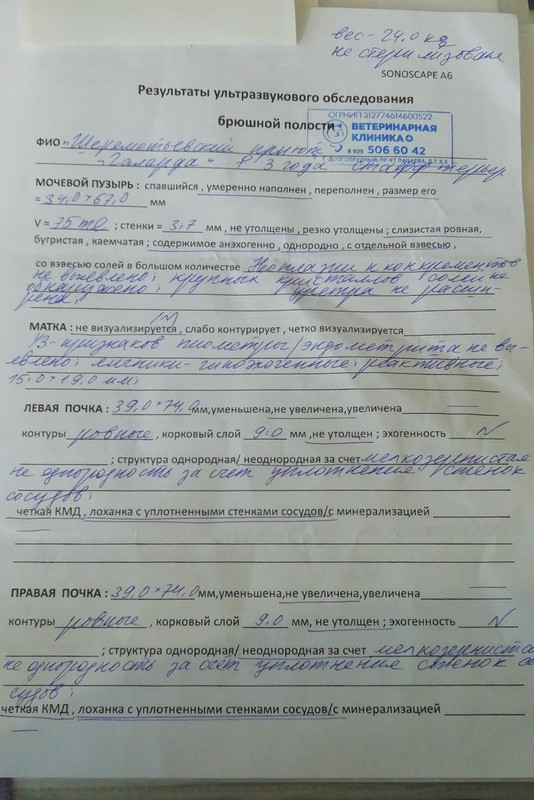 вес - 24,0 кg
не стерилизована
SONOSCAPE A6
Результаты ультразвукового обследования
брюшной полости
ОГРНИП 312774614600522
ВЕТЕРИНАРНАЯ
КЛИНИКА
8 925 506 60 42
Г. ДОЛГОПРУДНЫЙ, ПР-КТ ПАЦАЕВА, Д.7, К.5
ФИО "Шереметьевский приют
3 года стафф терьер
МОЧЕВОЙ ПУЗЫРЬ : спавшийся , умеренно наполнен , переполнен , размер его
= 34,0 × 67,0 мм
V = 75 ml ; стенки = 3,7 мм , не утолщены , резко утолщены ; слизистая ровная,
бугристая , каемчатая ; содержимое анэхогенно , однородно , с отдельной взвесью ,
со взвесью солей в большом количестве Неоплазии и конкрементов
не выявлено; крупных кристаллов солей не
обнаружено; уретра не расши-
рена;
МАТКА : не визуализируется , слабо контурирует , четко визуализируется
УЗ-признаков пиометры/эндометрита не вы-
явлено; яичники - гипоэхогенные; реактивные;
15,0 × 19,0 мм;
ЛЕВАЯ ПОЧКА : 39,0 × 74,0 мм,уменьшена,не увеличена,увеличена
контуры ровные , корковый слой 9,0 мм ,не утолщен ; эхогенность N
; структура однородная/ неоднородная за счет мелкозернистая
не однородность за счет уплотнения стенок
сосудов;
четкая КМД , лоханка с уплотненными стенками сосудов/с минерализацией
ПРАВАЯ ПОЧКА : 39,0 × 74,0 мм,уменьшена,не увеличена,увеличена
контуры ровные , корковый слой 9,0 мм, не утолщен ; эхогенность N
; структура однородная/ неоднородная за счет мелкозерниста
не однородность за счет уплотнения стенок со
судов;
четкая КМД , лоханка с уплотненными стенками сосудов/с минерализацией